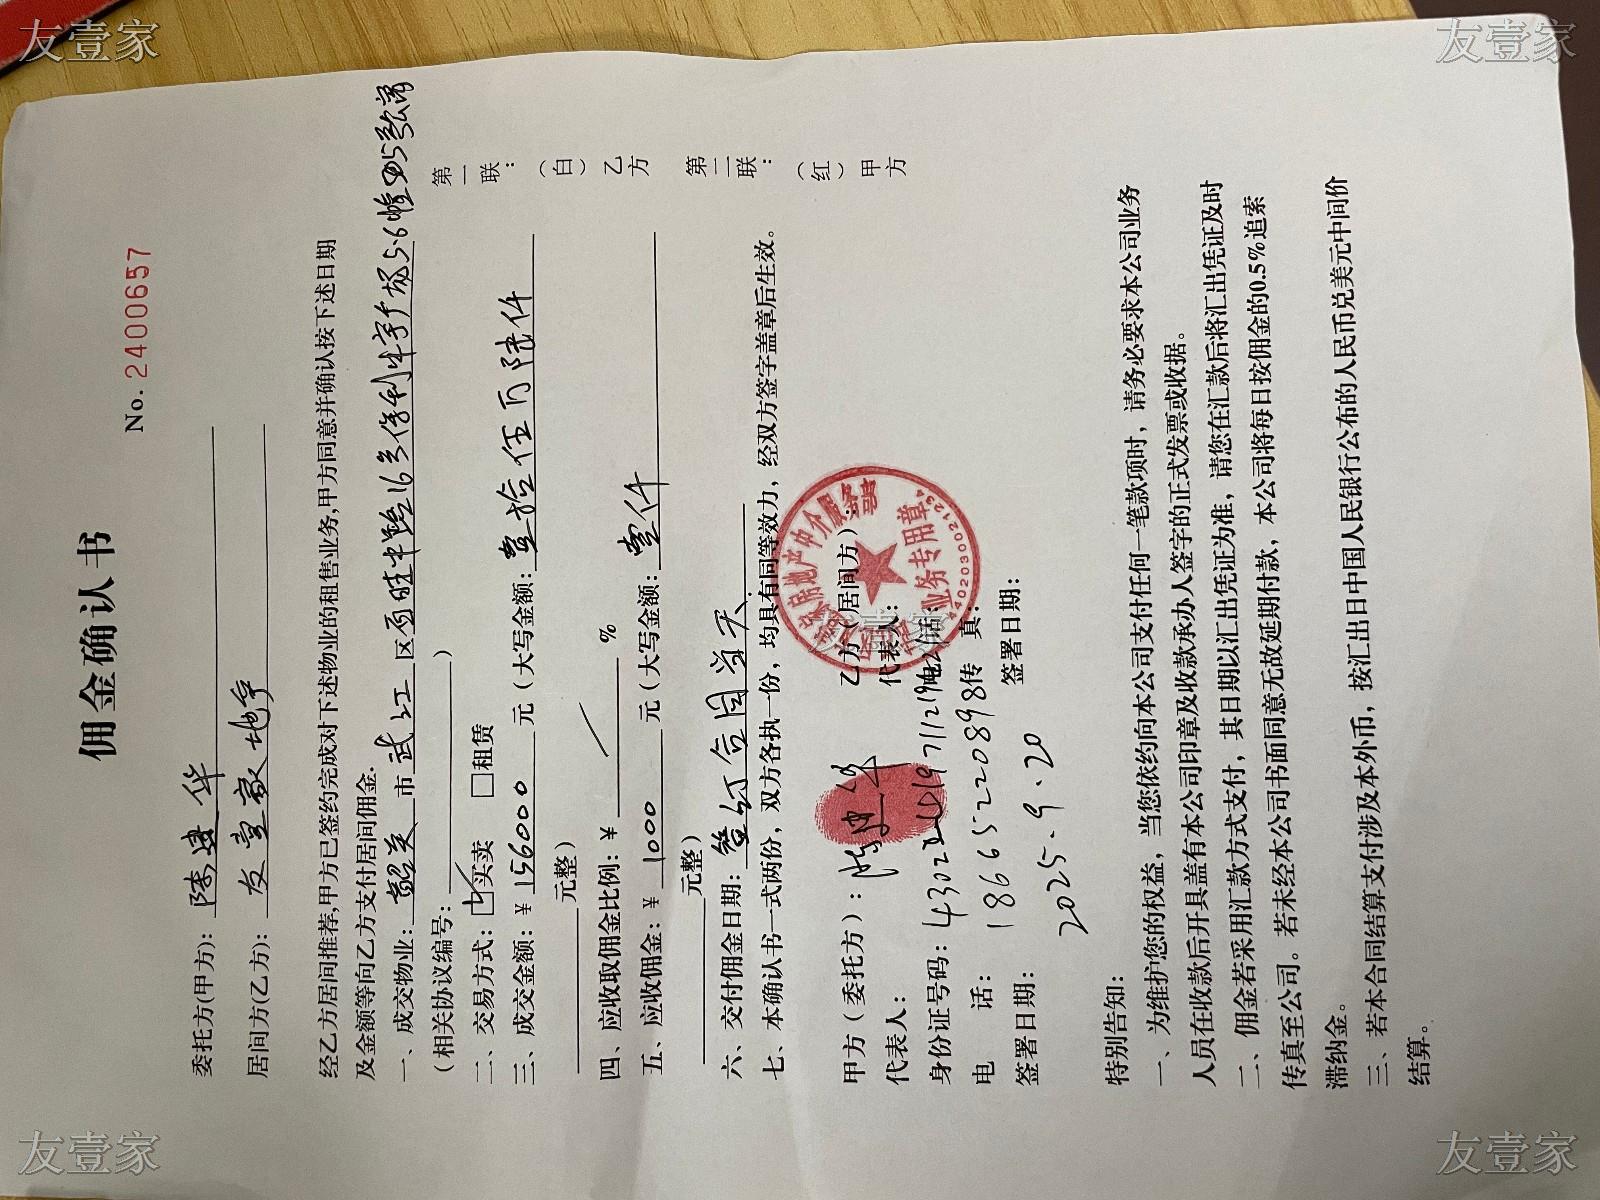 友壹家
友壹家
佣金确认书
No. 2400657
委托方(甲方): 陈建华
居间方(乙方): 友壹家地产
经乙方居间推荐,甲方已签约完成对下述物业的租售业务,甲方同意并确认按下述日期
及金额等向乙方支付居间佣金.
一、成交物业: 韶关 市 武江 区 西旺中路16号保利中宇广场5.6幢 号商
(相关协议编号: )
二、交易方式: ☑买卖 □租赁
三、成交金额: ¥ 156000 元(大写金额: 壹拾伍万陆仟
元整)
四、应收取佣金比例: ¥ / %
五、应收佣金: ¥ 1000 元(大写金额: 壹仟
元整)
六、交付佣金日期: 签红合同当天
七、本确认书一式两份,双方各执一份,均具有同等效力,经双方签字盖章后生效。
第一联:(白)乙方 第二联:(红)甲方
甲方(委托方): 陈建华 乙方(居间方):
代表人: 代表人:
身份证号码: 电话:
电 话: 18665220898 传 真:
签署日期: 2025.9.20 签署日期:
房地产中介服务部
业务专用章
4402030021234
特别告知:
一、为维护您的权益,当您依约向本公司支付任何一笔款项时,请务必要求本公司业务
人员在收款后开具盖有本公司印章及收款承办人签字的正式发票或收据。
二、佣金若采用汇款方式支付,其日期以汇出凭证为准,请您在汇款后将汇出凭证及时
传真至公司。若未经本公司书面同意无故延期付款,本公司将每日按佣金的0.5%追索
滞纳金。
三、若本合同结算支付涉及本外币,按汇出日中国人民银行公布的人民币兑美元中间价
结算。
友壹家
友壹家